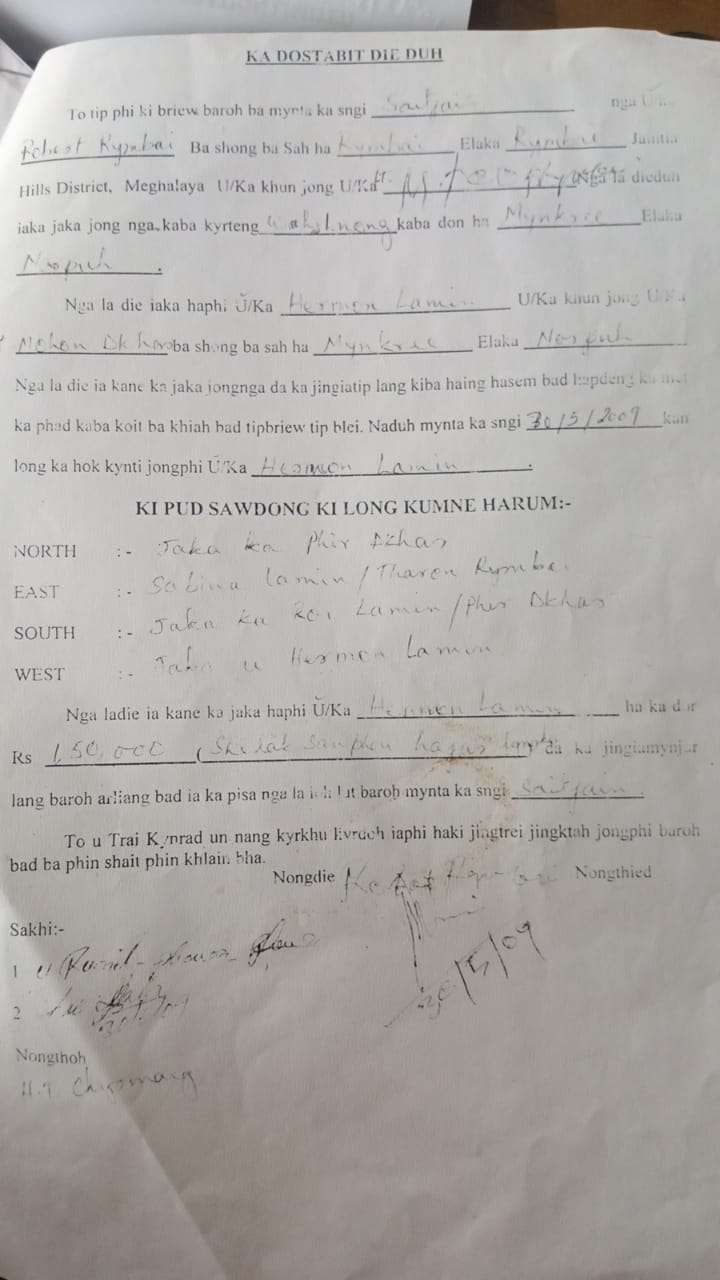 KA DOSTABIT DIE DUH
To tip phi ki briew baroh ba mynta ka sngi Saitjain nga U/Ka
Robest Rymbai Ba shong ba Sah ha Rymbai Elaka Rymbai Jaintia
Hills District, Meghalaya U/Ka khun jong U/Ka Nga la dieduh
iaka jaka jong nga, kaba kyrteng kaba don ha Mynkree Elaka
Narpuh.
Nga la die iaka haphi Ŭ/Ka Hermon Lamin U/Ka khun jong U/Ka
Mohon Dkhar ba shong ba sah ha Mynkree Elaka Narpuh
Nga la die ia kane ka jaka jongnga da ka jingiatip lang kiba haing hasem bad hapdeng ka met
ka phad kaba koit ba khiah bad tipbriew tip blei. Naduh mynta ka sngi 30/5/2009 kan
long ka hok kynti jongphi Ŭ/Ka Hermon Lamin.
KI PUD SAWDONG KI LONG KUMNE HARUM:-
NORTH :- Jaka ka Phir Dkhar
EAST :- Sabina Lamin/Tharon Rymbai
SOUTH :- Jaka ka Roi Lamin/Phir Dkhar
WEST :- Jaka u Hermon Lamin
Nga ladie ia kane ka jaka haphi Ŭ/Ka Hermon Lamin ha ka dor
Rs 1,50,000 (Shi lak sanphew hajar da ka jingiamynjur
lang baroh arliang bad ia ka pisa nga la ioh lut baroh mynta ka sngi Saitjain.
To u Trai Kynrad un nang kyrkhu livrdeh iaphi haki jingtrei jingktah jongphi baroh
bad ba phin shait phin khlain bha.
Nongdie Robest Rymbai Nongthied
30/5/09
Sakhi:-
1 u
2
30/5/09
Nongthoh
H.T. Chyrmang